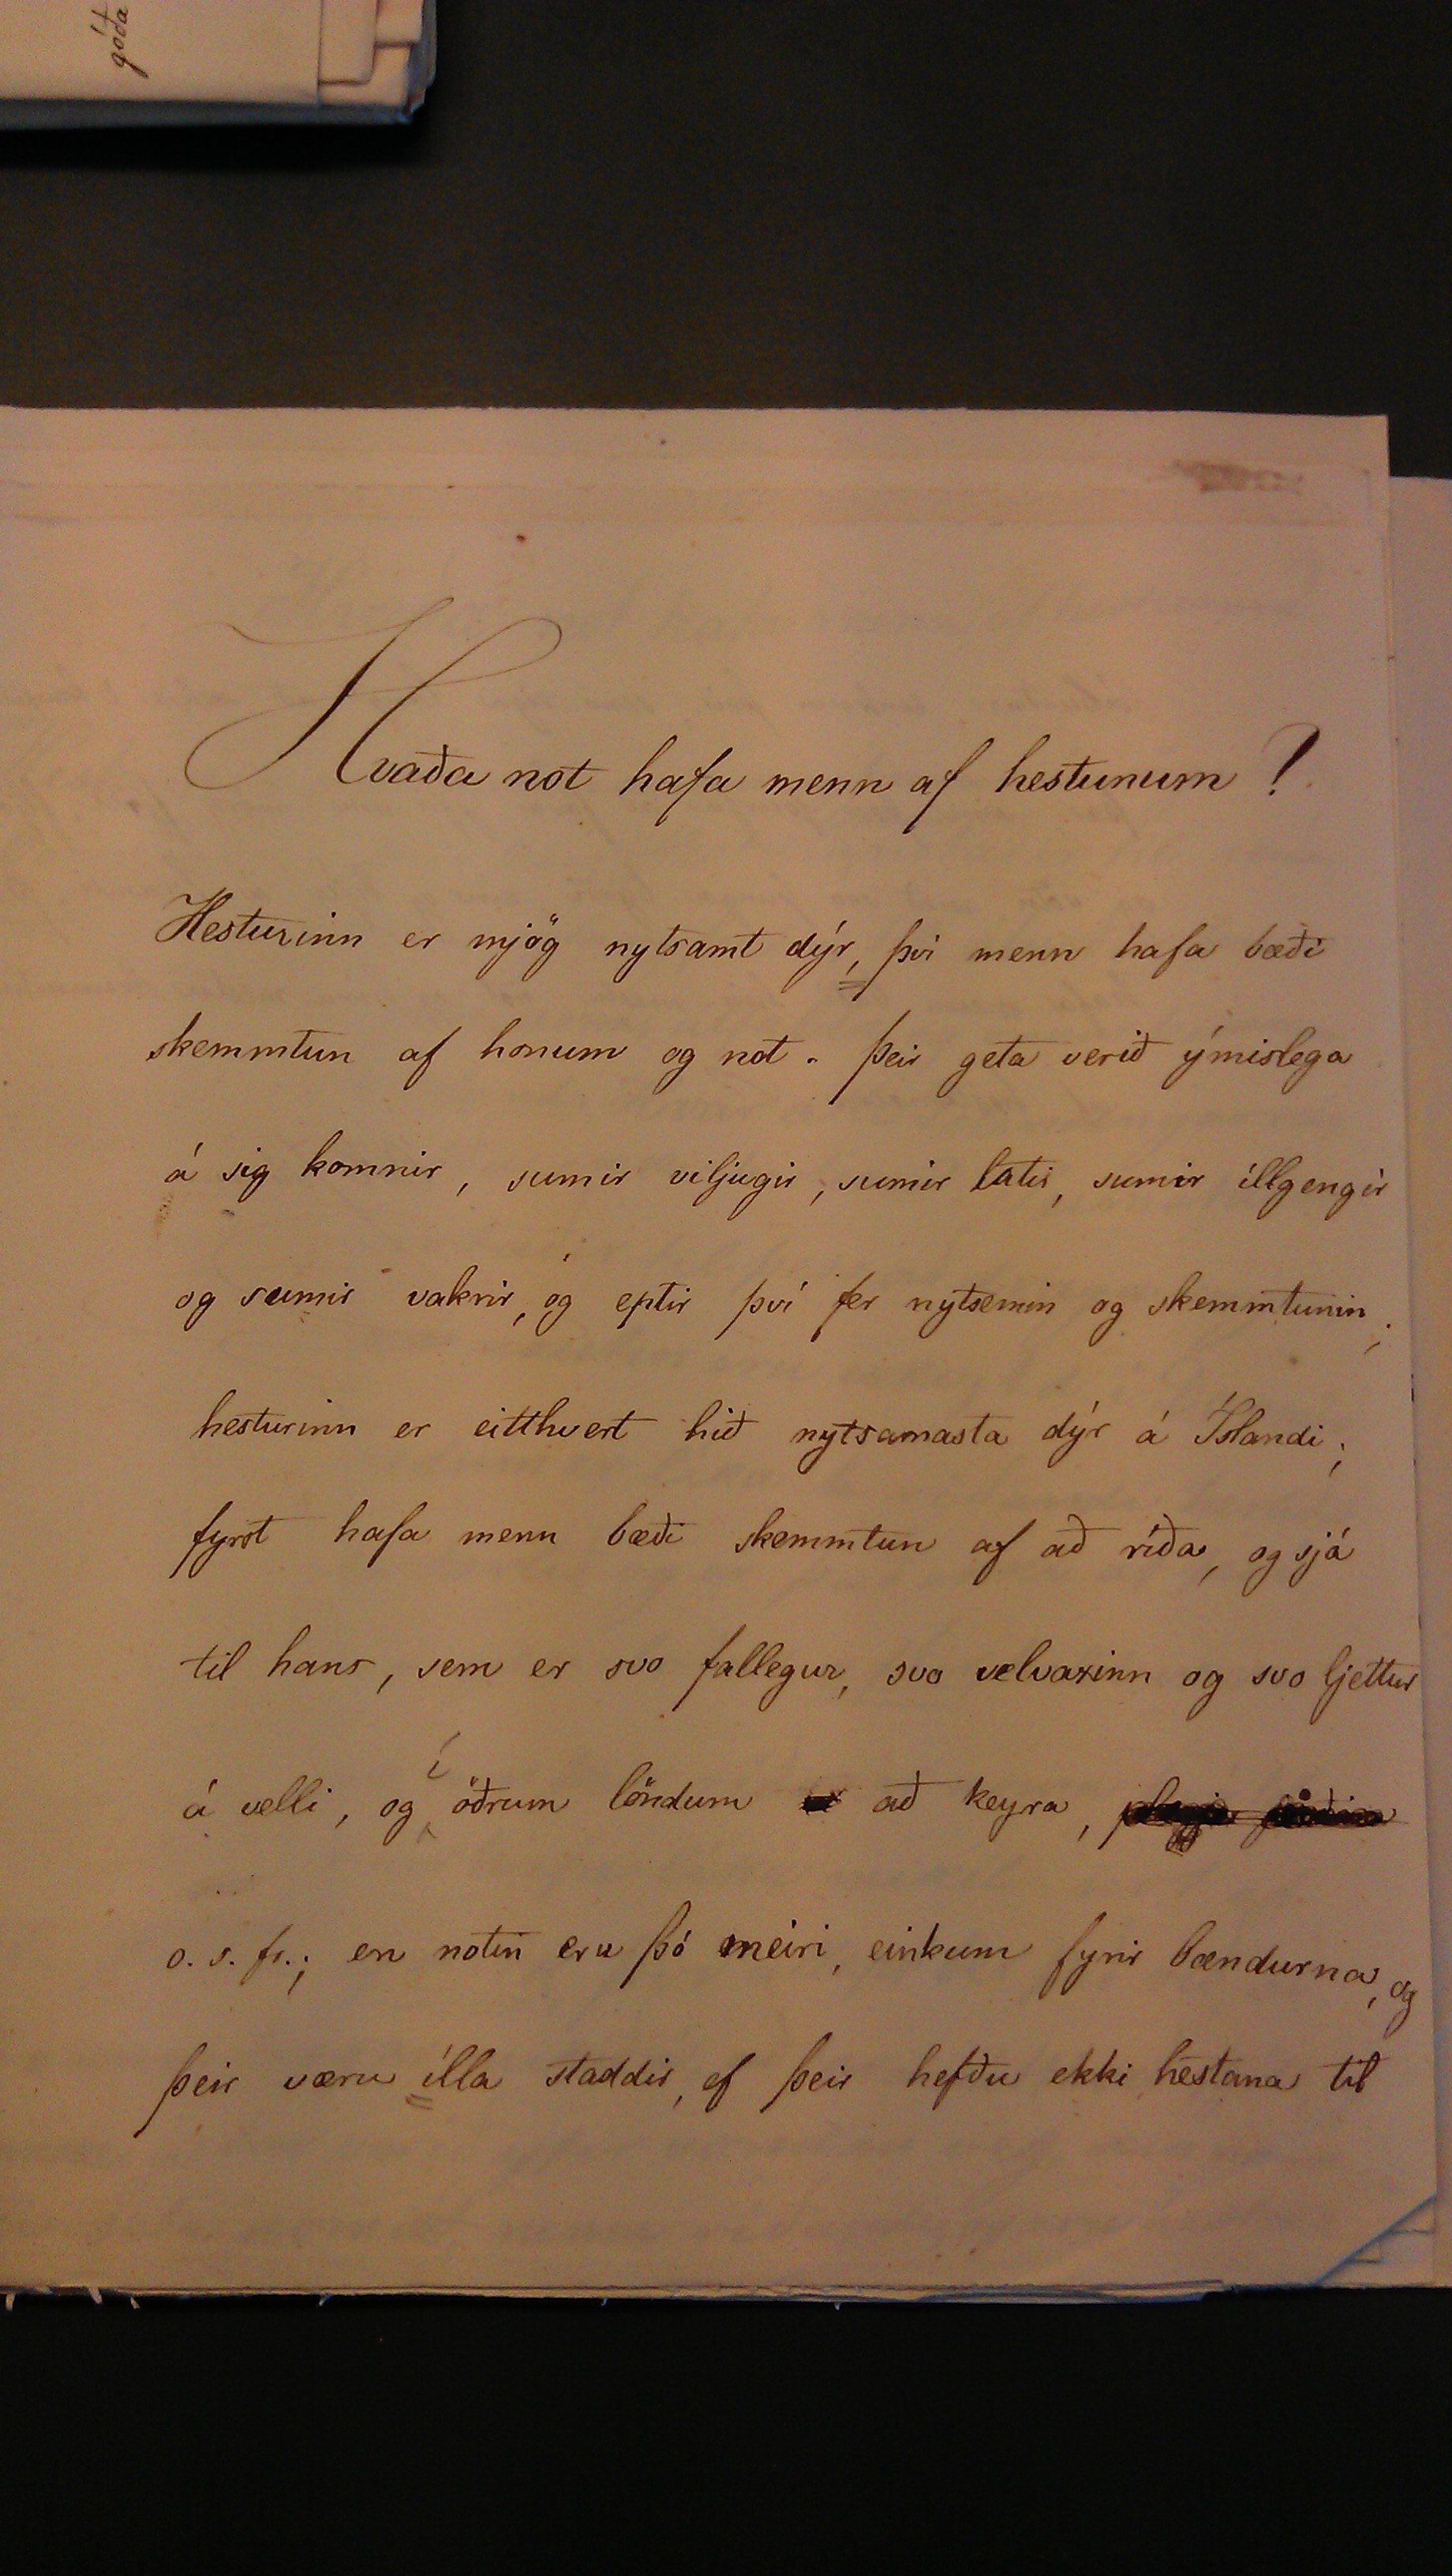 góða
Hvaða not hafa menn af hestunum?
Hesturinn er mjög nytsamt dýr, því menn hafa bæði
skemmtun af honum og not. Þeir geta verið ýmislega
á sig komnir, sumir viljugir, sumir latir, sumir illgengir
og sumir vakrir, og eptir því fer nytsemin og skemmtunin;
hesturinn er eitthvert hið nytsamasta dýr á Íslandi;
fyrst hafa menn bæði skemmtun af að ríða, og sjá
til hans, sem er svo fallegur, svo velvaxinn og svo ljettur
á velli, og í öðrum löndum að keyra,
o. s. fr.; en notin eru þó meiri, einkum fyrir bændurna, og
þeir væru illa staddir, ef þeir hefðu ekki hestana til